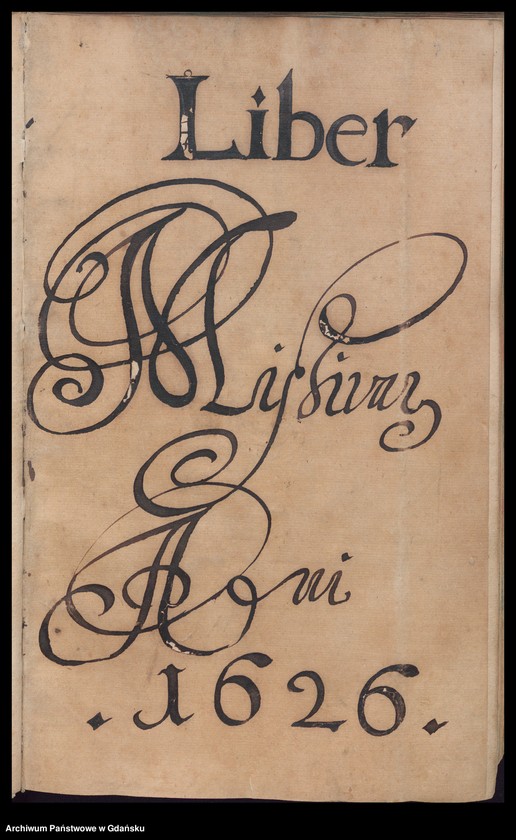 Liber
Missivar
Ani
.1626.
Archiwum Państwowe w Gdańsku